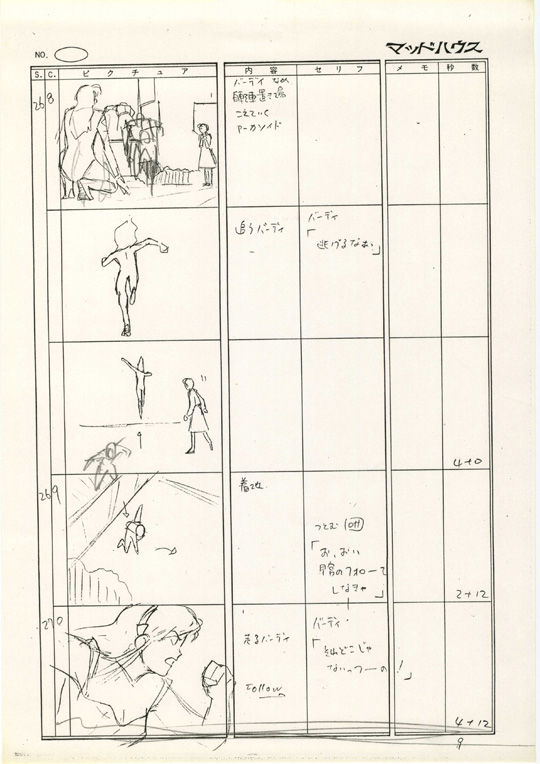 NO.
マッドハウス
S. C. ピクチュア 内容 セリフ メモ 秒数
268
バーディ なめ
自転車置き場
こえていく
アーカソイド
追うバーディ
バーディ
「逃げるなぁ」
4+0
269
着地
つとむ (off)
「お、おい
しなきゃ」
2+12
270
走るバーディ
Follow
バーディ
「それどこじゃ
ないっつーの!」
4+12
9